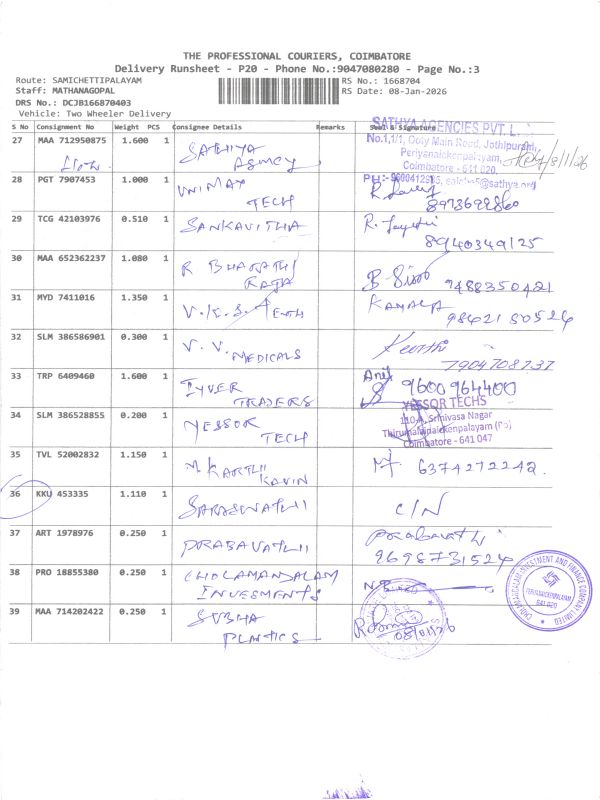 THE PROFESSIONAL COURIERS, COIMBATORE
Delivery Runsheet - P20 - Phone No.:9047080280 - Page No.:3
Route: SAMICHETTIPALAYAM
Staff: MATHANAGOPAL
DRS No.: DCJB166870403
Vehicle: Two Wheeler Delivery
RS No.: 1668704
RS Date: 08-Jan-2026
S No Consignment No Weight PCS Consignee Details Remarks Seal & Signature
27 MAA 712950875 1.600 1 SATHYA AGENCY
SATHYA AGENCIES PVT. L
No.1,1/1, Ooty Main Road, Jothipuram,
Periyanaickenpalayam,
Coimbatore - 641 020.
28 PGT 7907453 1.000 1 UNIMAX TECH
8973698860
29 TCG 42103976 0.510 1 SANKAVITHA
8940349125
30 MAA 652362237 1.080 1 R BHARATHI RAJA
9488350421
31 MYD 7411016 1.350 1 V.K.S. Tenth KAMALA
9842150524
32 SLM 386586901 0.300 1 V.V. MEDICALS Keerthi
7904708737
33 TRP 6409460 1.600 1 IYVER TRADERS
9600964400
34 SLM 386528855 0.200 1 YESSOR TECH
YESSOR TECHS
110-A, Srinivasa Nagar
Thirumalainaickenpalayam (Po)
Coimbatore - 641 047
35 TVL 52002832 1.150 1 M KARTHI KAVIN 6374272242
36 KKU 453335 1.110 1 SARASWATHI C/N
37 ART 1978976 0.250 1 PRABAVATHI Prabavathi
9698731524
38 PRO 18855380 0.250 1 CHOLAMANDALAM INVESMENTS
CHOLAMANDALAM INVESTMENT AND FINANCE COMPANY LIMITED
PERIYANAICKENPALAYAM
641 020
39 MAA 714202422 0.250 1 SUBHA PLASTICS
08/01/26